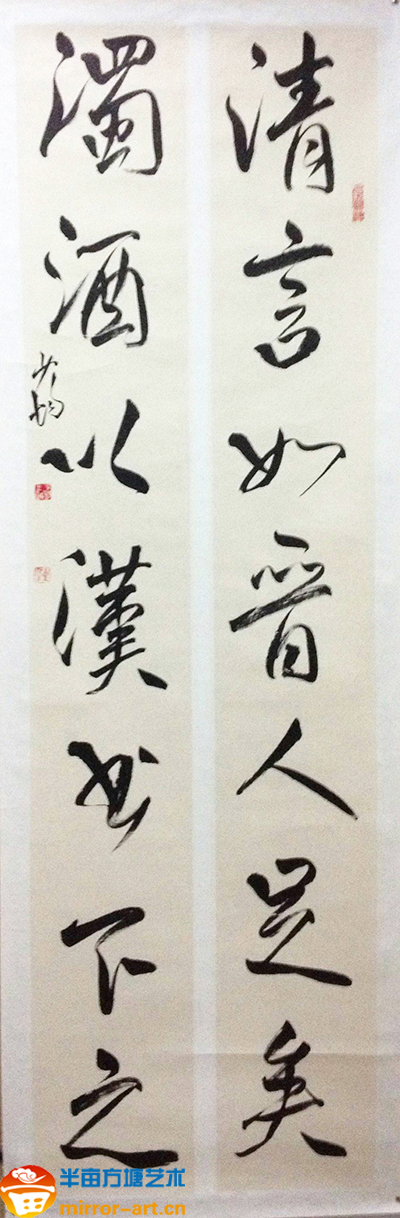 清言如晋人足矣
濁酒以漢书下之
半亩方塘艺术
mirror-art.cn